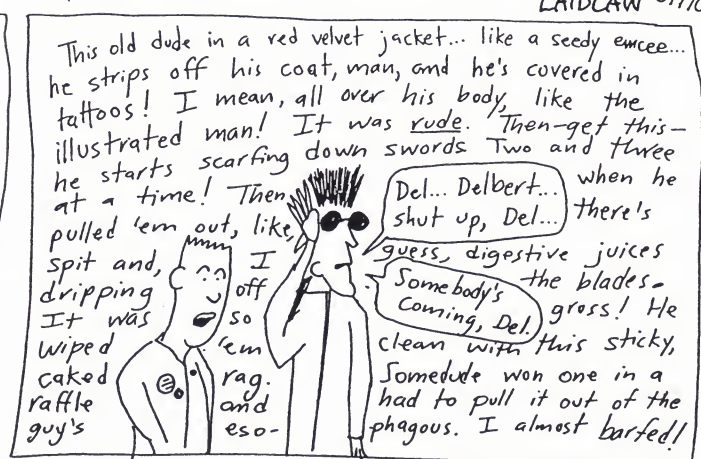 LAIDLAW
This old dude in a red velvet jacket... like a seedy emcee...
he strips off his coat, man, and he's covered in
tattoos! I mean, all over his body, like the
illustrated man! It was rude. Then-get this-
he starts scarfing down swords Two and three
at a time! Then when he
pulled 'em out, like, there's
spit and, I guess, digestive juices
dripping off the blades.
It was so gross! He
wiped 'em clean with this sticky,
caked rag. Somedude won one in a
raffle and had to pull it out of the
guy's eso- phagous. I almost barfed!
Del... Delbert...
shut up, Del...
Somebody's
coming, Del.